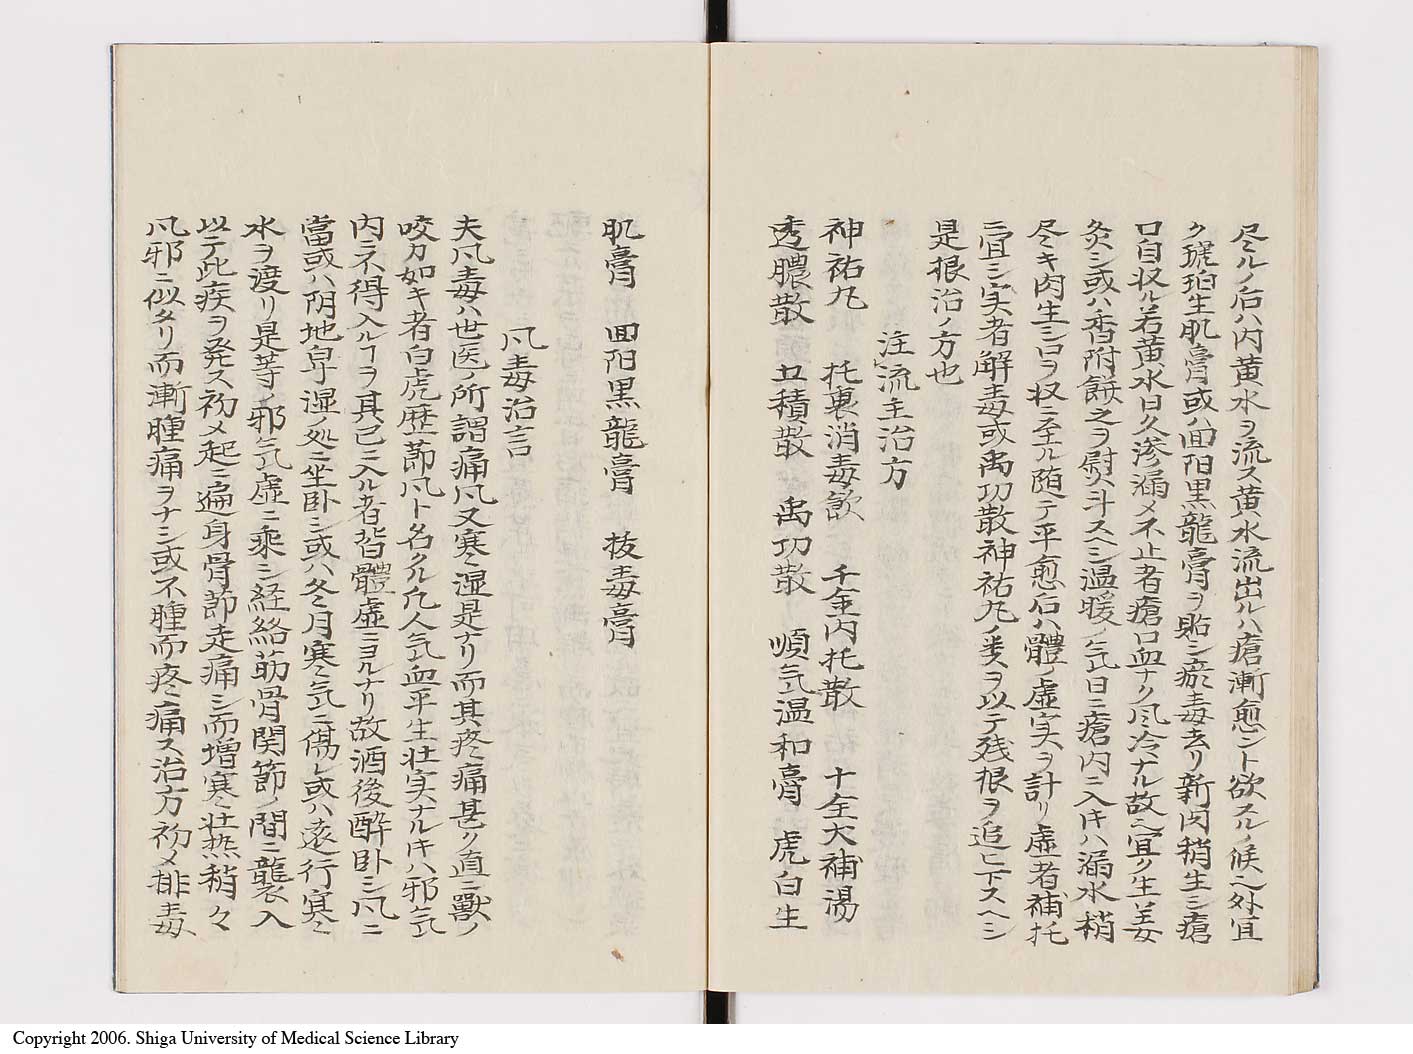 尽ルノ后ハ内黄水ヲ流ス黄水流出ルハ瘡漸愈ント欲スルノ候ヘ外宜
ク琥珀生肌膏或ハ囬阳黒龍膏ヲ貼シ瘀毒去リ新肉稍生シ瘡
口自収ル若黄水日久滲漏メ不止者瘡口血ナク风冷ナル故ヘ宜ク生姜
灸シ或ハ香附餅之ヲ熨斗スヘシ温暖ノ气日ニ瘡内ニ入片ハ漏水稍
尽キ肉生シ口ヲ収ニ至ル随テ平愈后ハ體ノ虚実ヲ計リ虚者補托
ニ宜シ実者解毒或禹功散神祐丸ノ类ヲ以テ残根ヲ追ヒ下スヘシ
是根治ノ方也
注流主治方
神祐丸 托裏消毒飲 千金内托散 十全大補湯
透膿散 五積散 禹功散 順气温和膏 虎白生
肌膏 囬阳黒龍膏 抜毒膏
凡毒治言
夫凡毒ハ世医ノ所謂痛凡又寒湿是ナリ而其疼痛甚ク直ニ獸ノ
咬カ如キ者白虎歴節凡ト名クル凡人气血平生壮実ナル片ハ邪气
内ニ不得入ルヿヲ其已ニ入ル者皆體虚ニヨルナリ故酒後酔卧シ凡ニ
當或ハ阴地卑湿ノ処ニ坐卧シ或ハ冬月寒气ニ傷レ或ハ遠行寒
水ヲ渡リ是等ノ邪气虚ニ乘シ経絡筋骨関節ノ間ニ襲入
以テ此疾ヲ発ス初メ起ニ遍身骨節走痛シ而増寒壮热稍々
凡邪ニ似タリ而漸腫痛ヲナシ或不腫而疼痛ス治方初メ排毒